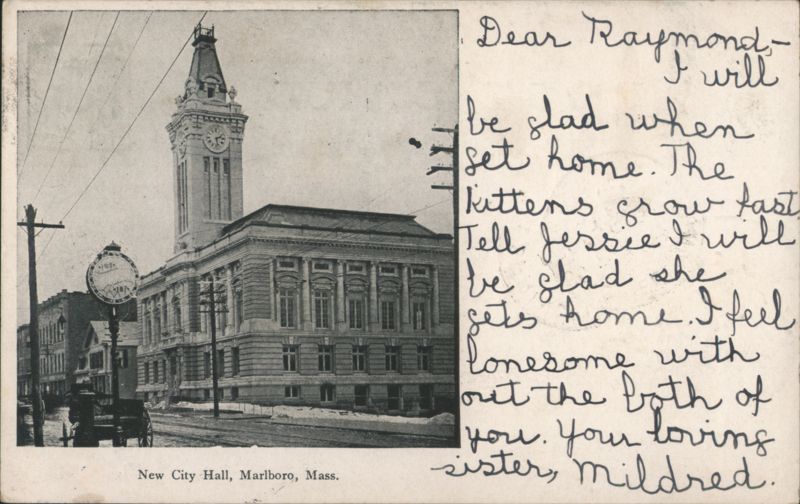 Dear Raymond,-
I will
be glad when
get home. The
kittens grow fast
Tell Jessie I will
be glad she
gets home. I feel
lonesome with
out the both of
you. Your loving
sister, Mildred.
New City Hall, Marlboro, Mass.